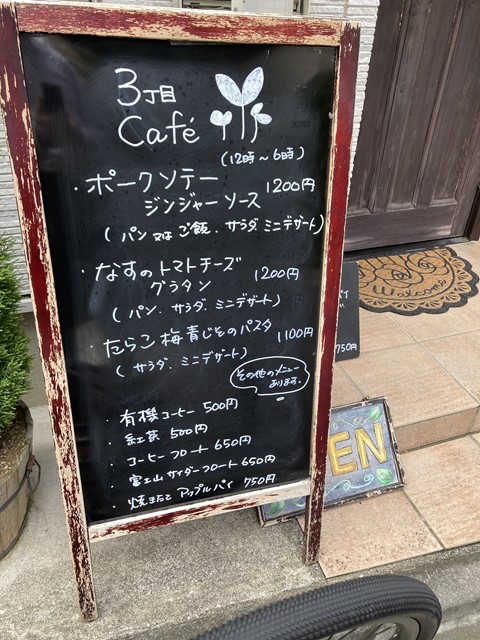 3丁目
Café
(12時～6時)
・ポークソテー
ジンジャーソース 1200円
(パン又はご飯、サラダ、ミニデザート)
・なすのトマトチーズ
グラタン 1200円
(パン、サラダ、ミニデザート)
・たらこ梅青じそのパスタ 1100円
(サラダ、ミニデザート)
その他のメニュー
あります。
・有機コーヒー 500円
・紅茶 500円
・コーヒーフロート 650円
・富士山サイダーフロート 650円
・焼きたて アップルパイ 750円
Welcome
パイ
750円
EN